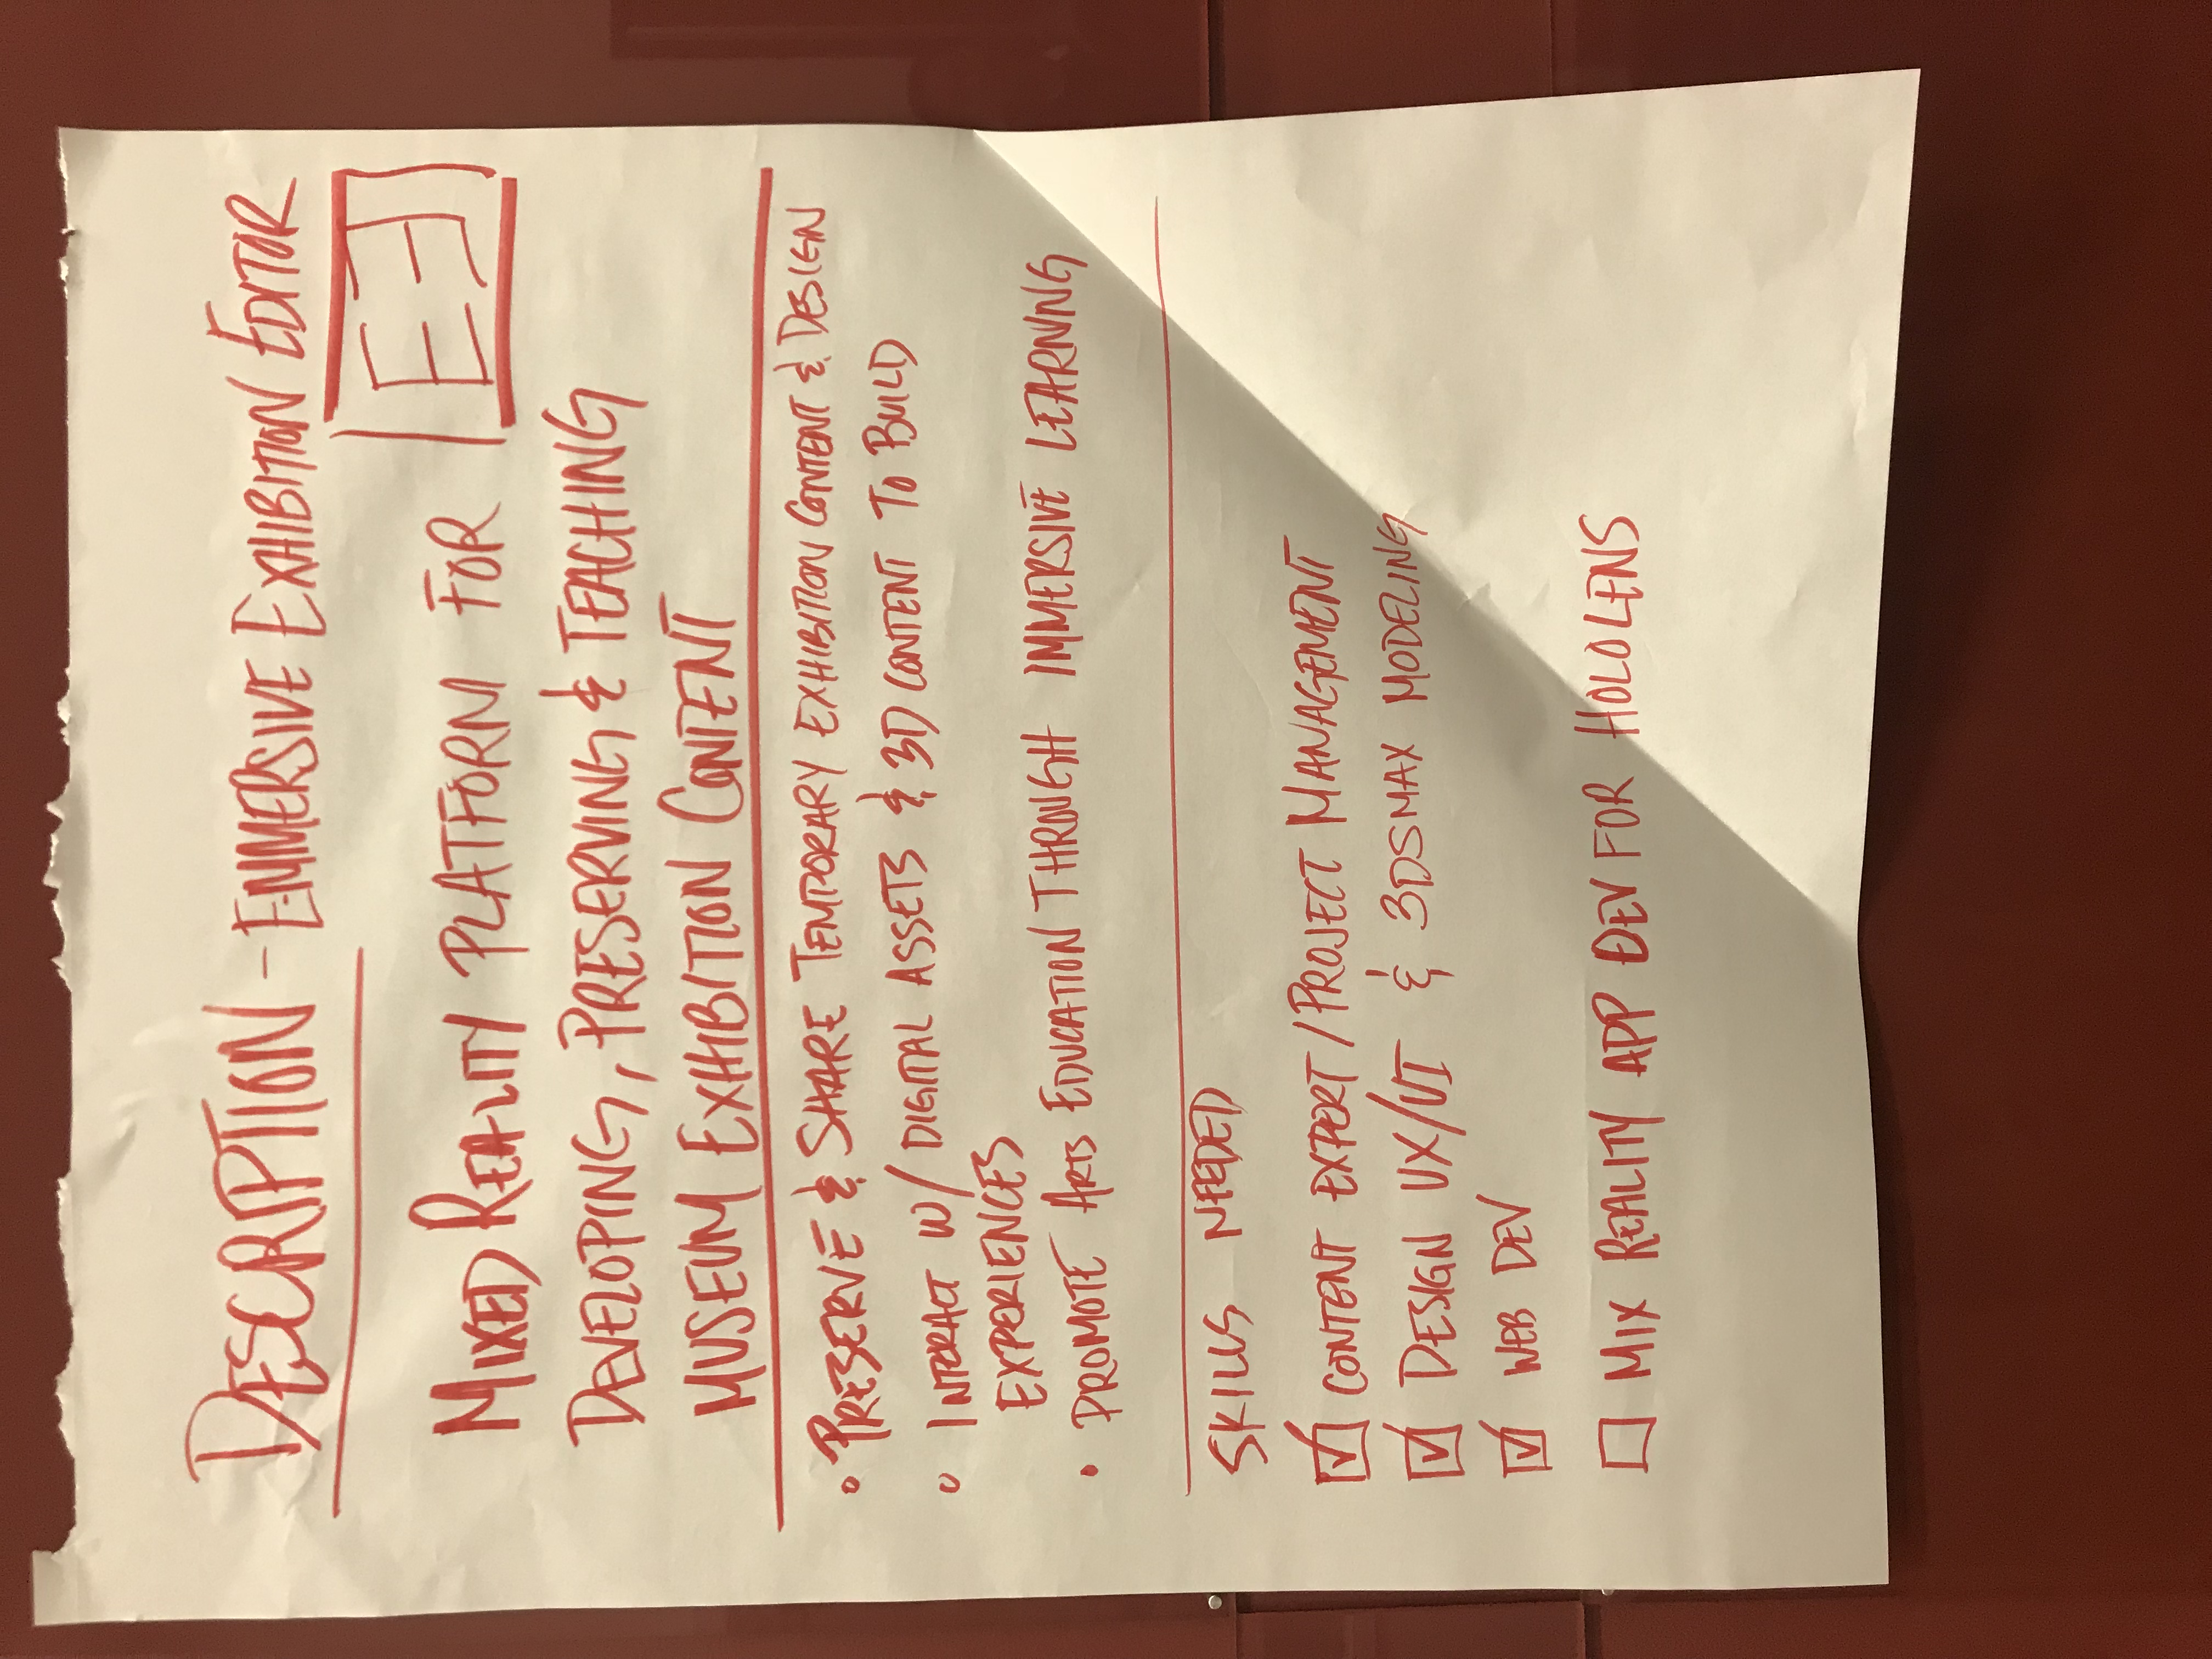 DESCRIPTION - EMMERSIVE EXHIBITION EDITOR
[EE]
MIXED REALITY PLATFORM FOR
DEVELOPING, PRESERVING & TEACHING
MUSEUM EXHIBITION CONTENT
• PRESERVE & SHARE TEMPORARY EXHIBITION CONTENT & DESIGN
• INTERACT W/ DIGITAL ASSETS & 3D CONTENT TO BUILD
EXPERIENCES
• PROMOTE ARTS EDUCATION THROUGH IMMERSIVE LEARNING
SKILLS NEEDED
☑ CONTENT EXPERT/PROJECT MANAGEMENT
☑ DESIGN UX/UI & 3DSMAX MODELING
☑ WEB DEV
☐ MIX REALITY APP DEV FOR HOLOLENS